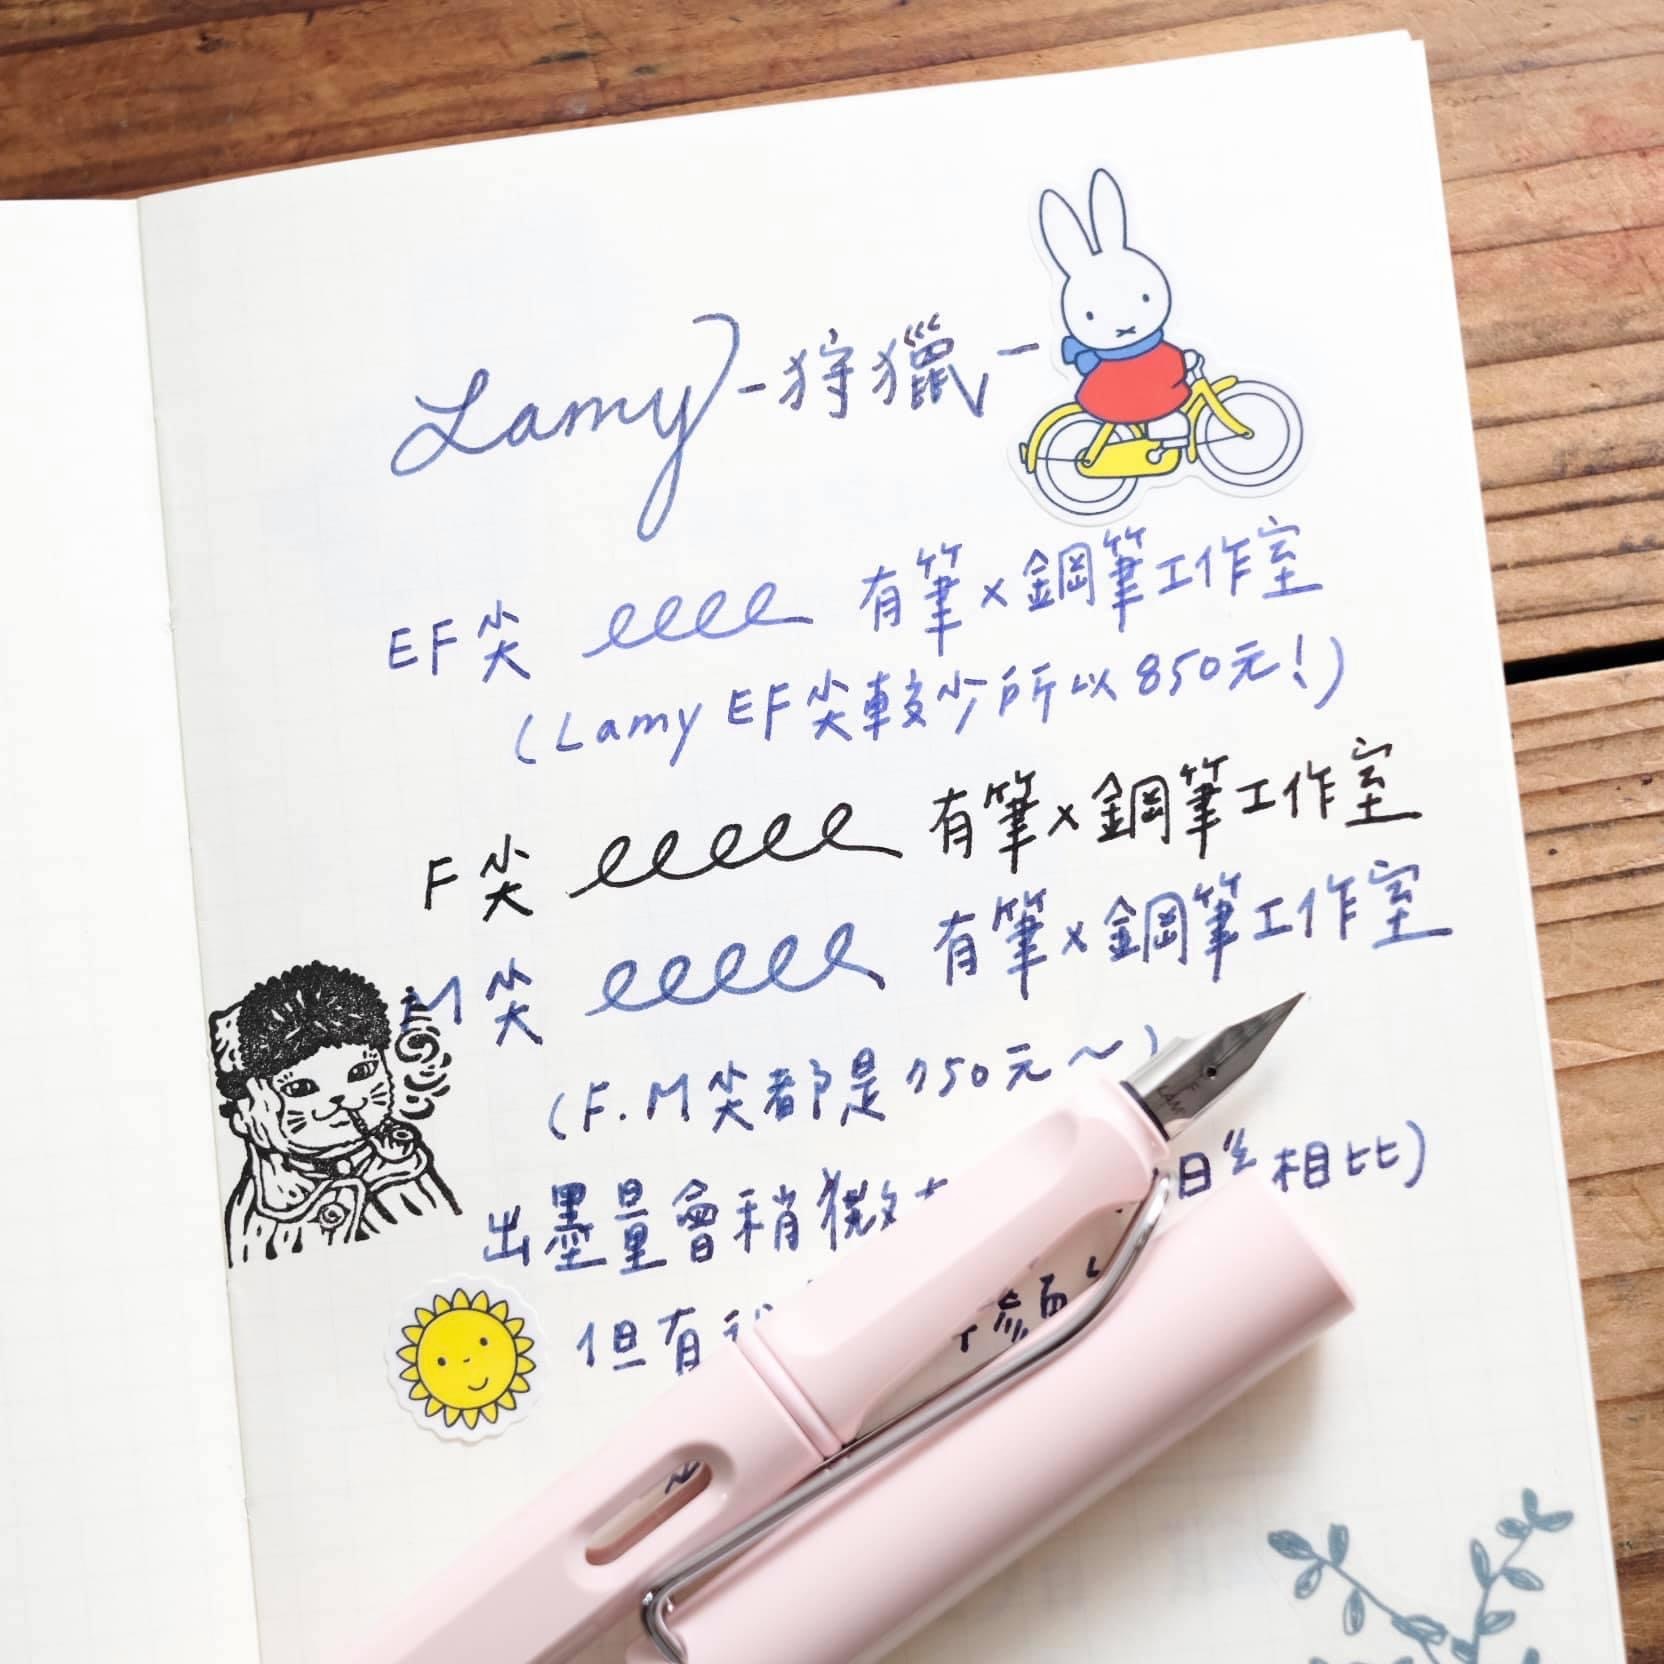 Lamy - 狩獵 -
EF尖 有筆×鋼筆工作室
(Lamy EF尖較少所以850元!)
F尖 有筆×鋼筆工作室
M尖 有筆×鋼筆工作室
(F.M尖都是750元~)
出墨量會稍微 相比)
但有
LAMY